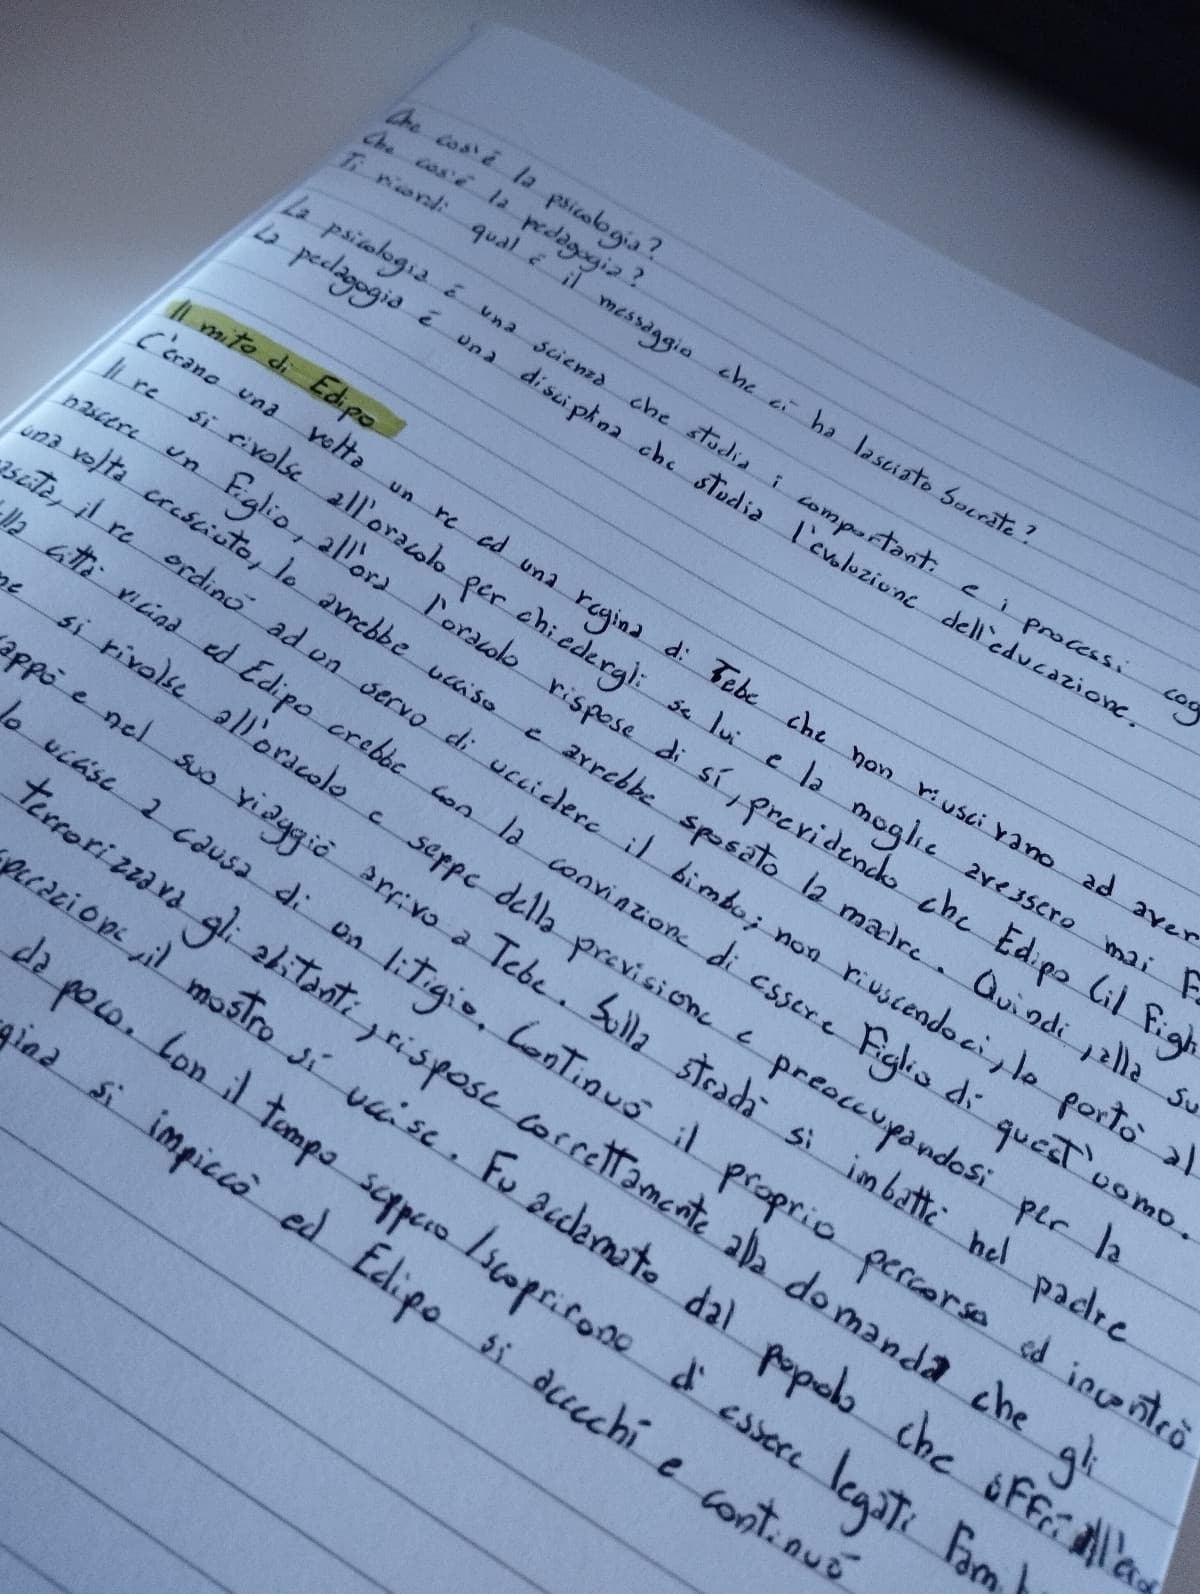 Che cos'è la psicologia?
Che cos'è la pedagogia?
Ti ricordi qual è il messaggio che ci ha lasciato Socrate?
La psicologia è una scienza che studia i comportanti e i processi cog
La pedagogia è una disciplina che studia l'evoluzione dell'educazione.
Il mito di Edipo
C'erano una volta un re ed una regina di Tebe che non riuscivano ad aver
Il re si rivolse all'oracolo per chiedergli se lui e la moglie avessero mai F
nascere un Figlio, all'ora l'oracolo rispose di sí, prevидendo che Edipo (il Figli
una volta cresciuto, lo avrebbe ucciso e avrebbe sposato la madre. Quindi, alla su
ascita, il re ordinò ad un servo di uccidere il bimbo; non riuscendoci, lo portò al
lla città vicina ed Edipo crebbe con la convinzione di essere Figlio di quest'uomo.
ne si rivolse all'oracolo e seppe della previsione e preoccupandosi per la
appò e nel suo viaggio arrivò a Tebe. Sulla strada si imbatté nel padre
lo uccise a causa di un litigio. Continuò il proprio percorso ed incontrò
terrorizzava gli abitanti, rispose correttamente alla domanda che gli
il mostro si uccise. Fu acclamato dal popolo che offrí all'
da poco. Con il tempo seppero/scoprirono di essere legati Fam
gina si impiccò ed Edipo si accechí e continuò